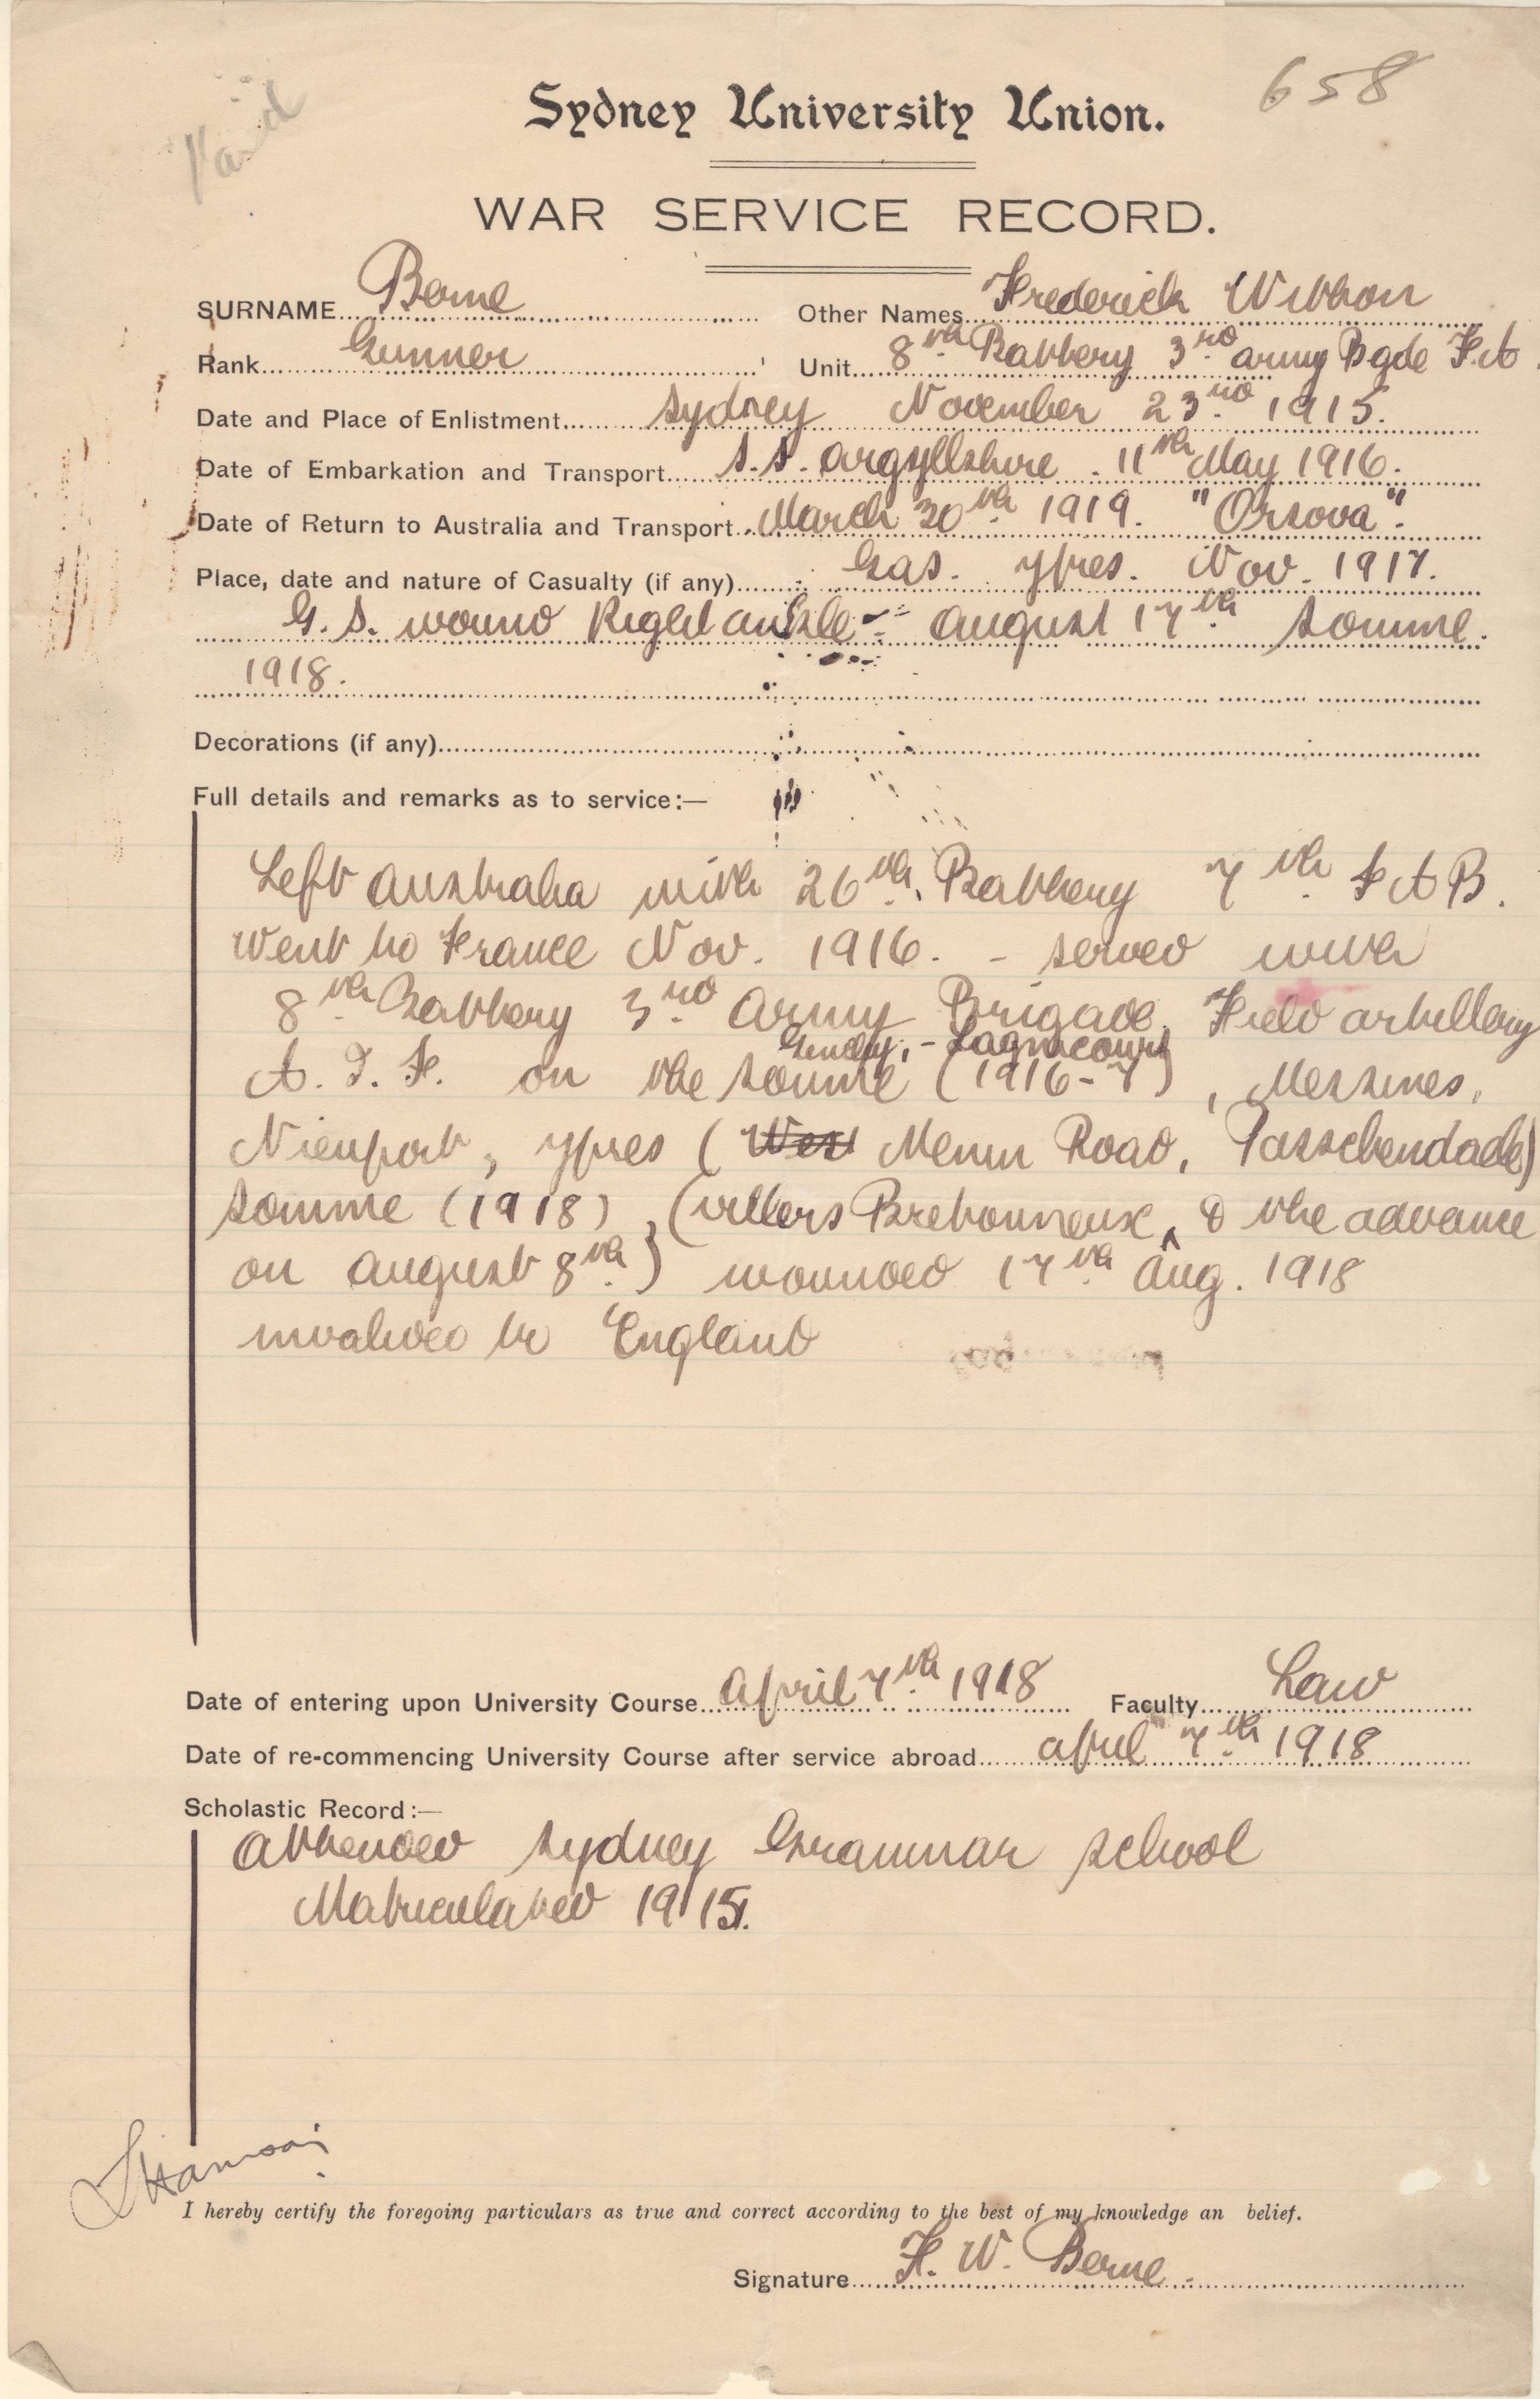 Paid
658
Sydney University Union.
WAR SERVICE RECORD.
SURNAME Berne Other Names Frederick Wibbon
Rank Gunner Unit 8th Battery 3rd army Bgde F.A.
Date and Place of Enlistment Sydney November 23rd 1915.
Date of Embarkation and Transport S.S. Argyllshire . 11th May 1916.
Date of Return to Australia and Transport March 20th 1919. "Orsova".
Place, date and nature of Casualty (if any) Gas. Ypres. Nov. 1917.
G. S. wound Right ankle - August 17th Somme.
1918.
Decorations (if any)
Full details and remarks as to service:—
Left Australia with 26th Battery 7th F A B.
Went to France Nov. 1916. - served with
8th Battery 3rd Army Brigade. Field artillery
Lagnicourt
A. I. F. on the Somme (1916-7), Messines,
Nieuport, Ypres (West Menin Road, Passchendaele)
Somme (1918), (Villers Bretonneux, & the advance
on August 8th) wounded 17th Aug. 1918
invalided to England
Date of entering upon University Course April 7th 1918 Faculty Law
Date of re-commencing University Course after service abroad April 7th 1918
Scholastic Record:—
Attended Sydney Grammar School
Matriculated 1915.
I hereby certify the foregoing particulars as true and correct according to the best of my knowledge an belief.
Signature F. W. Berne.